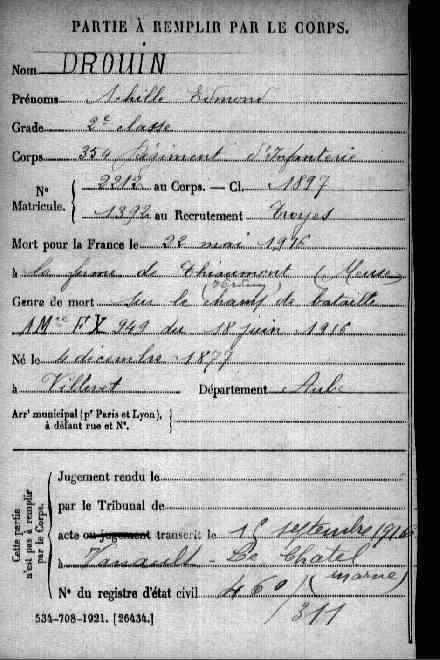 PARTIE À REMPLIR PAR LE CORPS.
Nom DROUIN
Prénoms Achille Edmond
Grade 2e classe
Corps 354 Régiment d'Infanterie
No Matricule. { 2212 au Corps. — Cl. 1897
1392 au Recrutement Troyes
Mort pour la France le 22 mai 1916
à la ferme de Thiaumont (Meuse)
(Verdun)
Genre de mort sur le champ de bataille
1Mce FX 949 du 18 juin 1916
Né le 4 décembre 1877
à Villeret Département Aube
Arrt municipal (pr Paris et Lyon), à défaut rue et No. }
Cette partie n'est pas à remplir par le Corps.
Jugement rendu le
par le Tribunal de
acte ou jugement transcrit le 15 septembre 1916
à Vanault - Le Chatel
(marne)
No du registre d'état civil 460
/311
534-708-1921. [26434.]